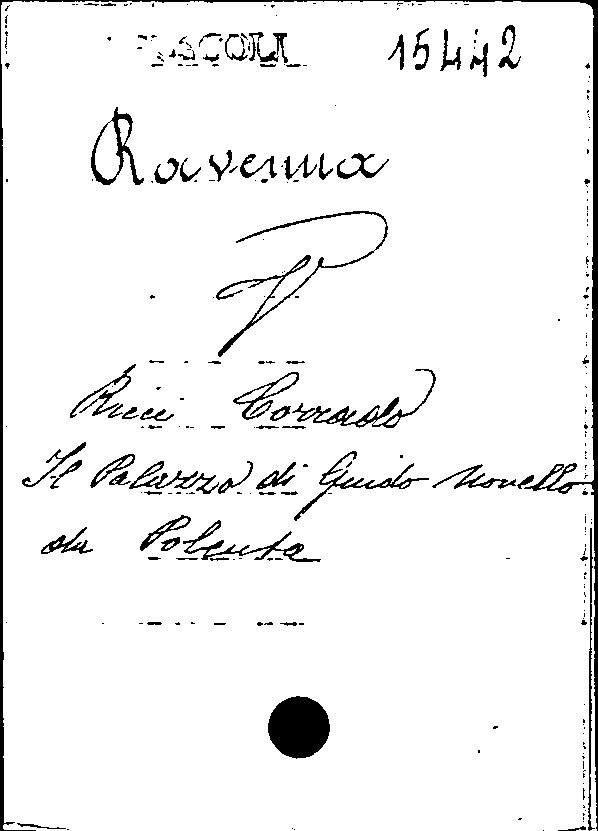 15442
Ravenna
V
Ricci Corrado
Il Palazzo di Guido Novello
da Polenta